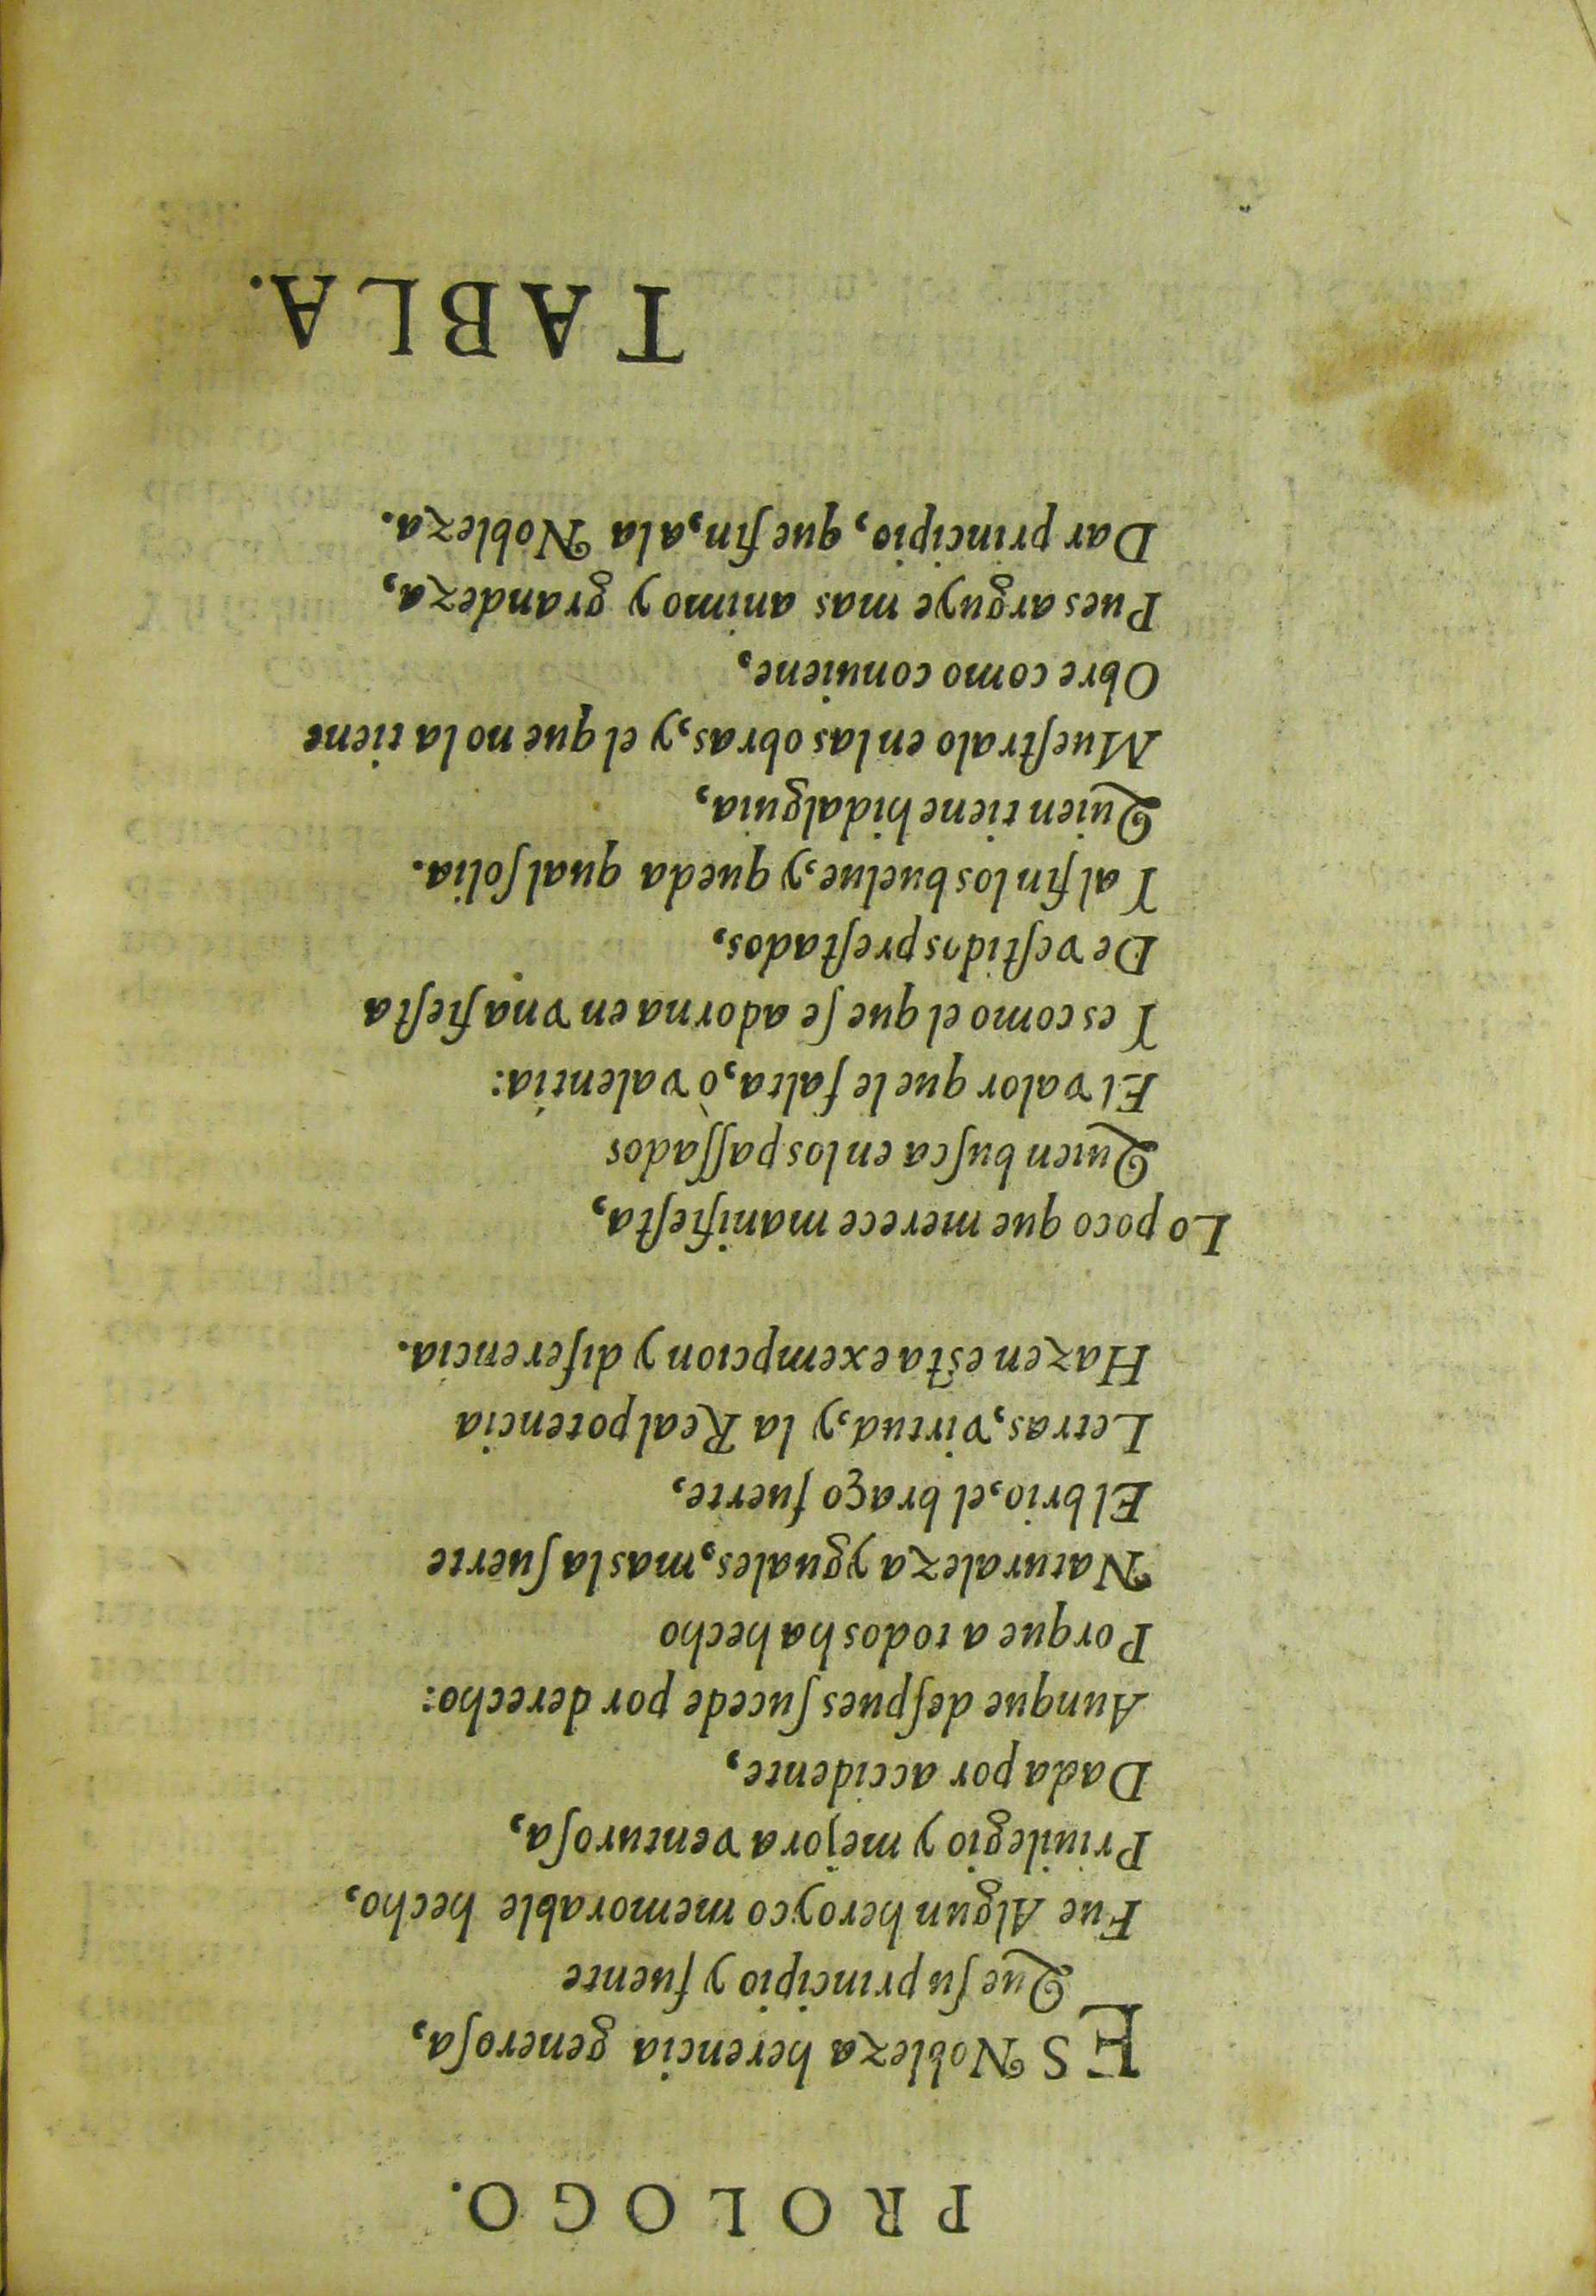 PROLOGO.
ES Nobleza herencia generoſa,
Que ſu principio y fuente
Fue Algun heroyco memorable hecho,
Priuilegio y mejora venturoſa,
Dada por accidente,
Aunque deſpues ſucede por derecho:
Porque a todos ha hecho
Naturaleza yguales, mas la ſuerte
El brio, el braço fuerte,
Letras, virtud, y la Real potencia
Hazen esta exempcion y diferencia.
Lo poco que merece manifieſta,
Quien buſca en los paſſados
El valor que le falta, ò valentia:
Y es como el que ſe adorna en vna fieſta
De veſtidos preſtados,
Y al fin los buelue, y queda qual ſolia.
Quien tiene hidalguia,
Mueſtralo en las obras, y el que no la tiene
Obre como conuiene,
Pues arguye mas animo y grandeza,
Dar principio, que fin, a la Nobleza.
TABLA.